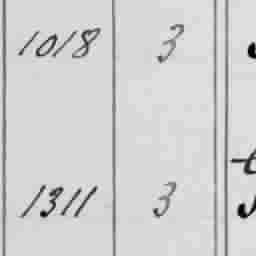 1018 3
1311 3